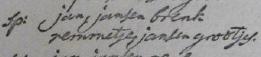 sp: jan jansen brenk
remmetje jansen grootjes.